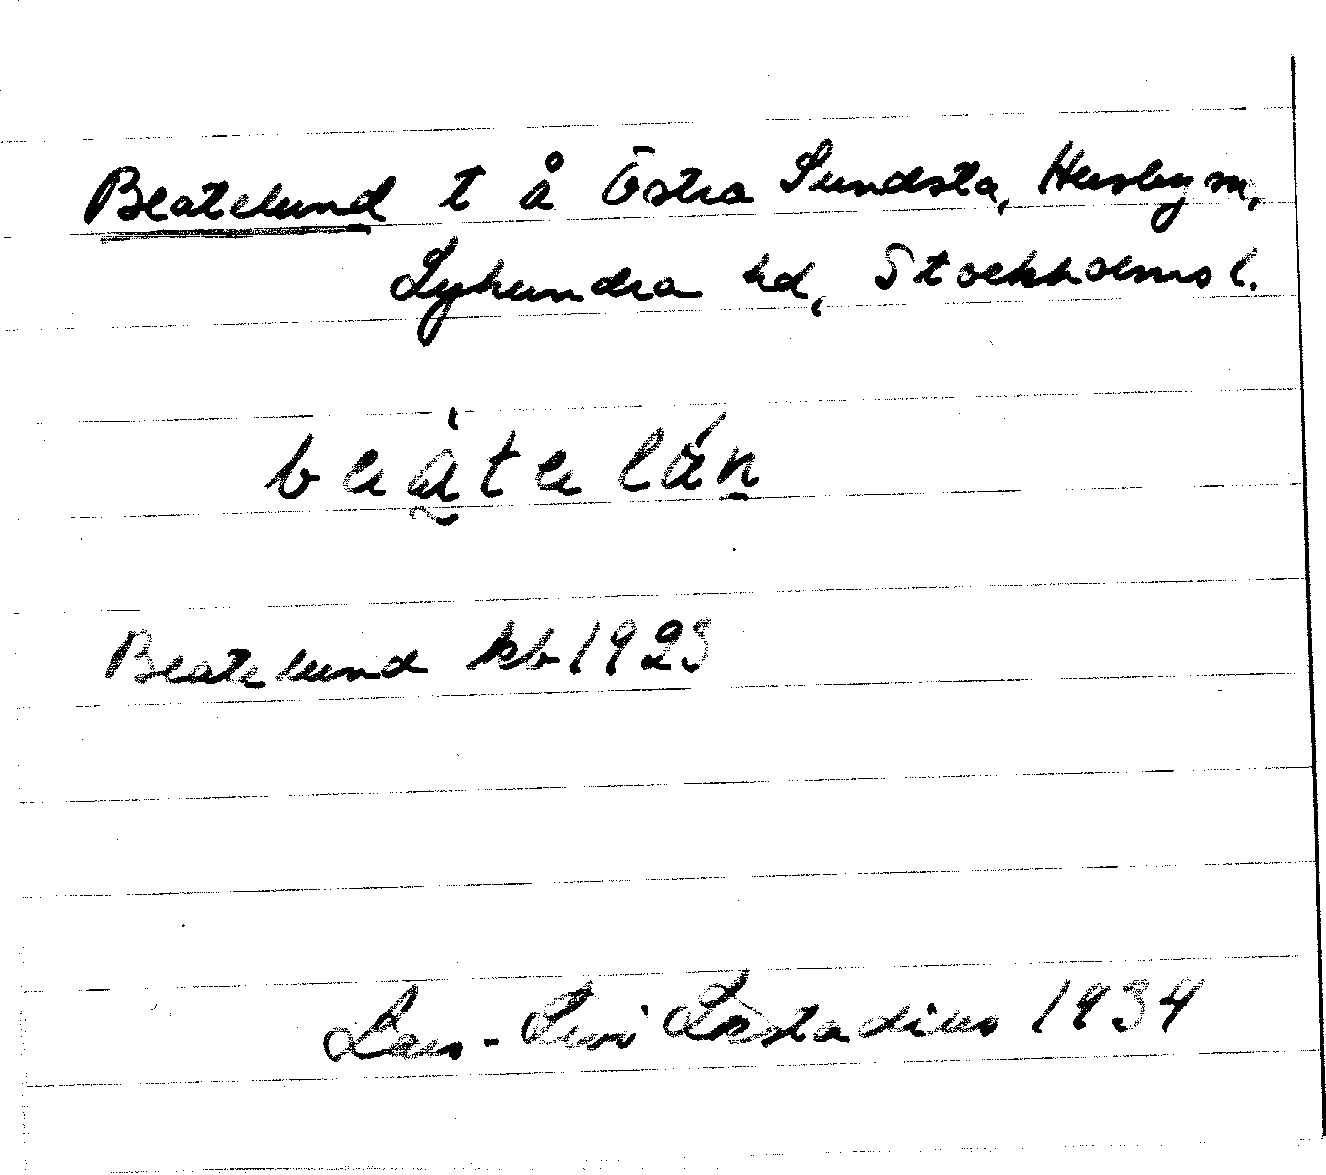 Beatelund t å Östra Sundsta, Husby sn,
Lyhundra hd, Stockholms l.
beàtelán
Beatelund kb 1923
Lars-Levi Læstadius 1934